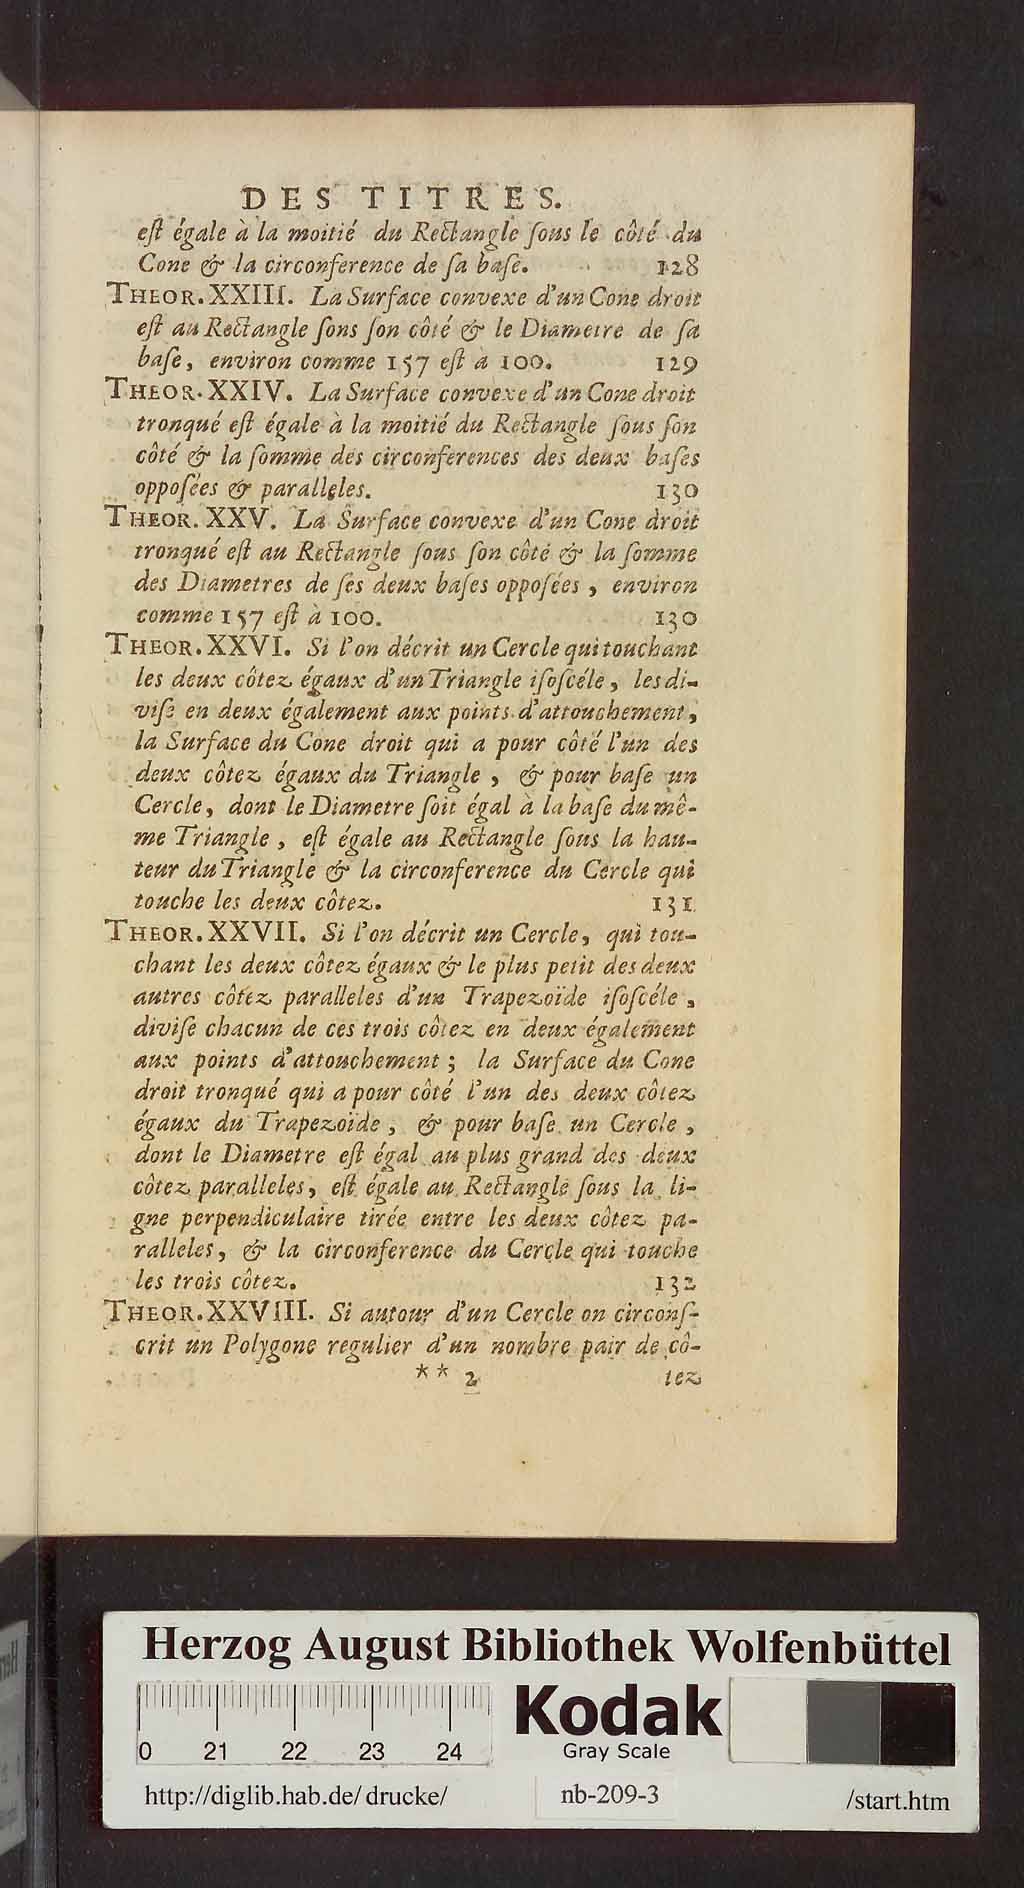 DES TITRES.
eſt égale à la moitié du Rectangle ſous le côté du
Cone & la circonference de ſa baſe. 128
THEOR. XXIII. La Surface convexe d'un Cone droit
eſt au Rectangle ſons ſon côté & le Diametre de ſa
baſe, environ comme 157 eſt à 100. 129
THEOR. XXIV. La Surface convexe d'un Cone droit
tronqué eſt égale à la moitié du Rectangle ſous ſon
côté & la ſomme des circonferences des deux baſes
oppoſées & paralleles. 130
THEOR. XXV. La Surface convexe d'un Cone droit
tronqué eſt au Rectangle ſous ſon côté & la ſomme
des Diametres de ſes deux baſes oppoſées, environ
comme 157 eſt à 100. 130
THEOR. XXVI. Si l'on décrit un Cercle qui touchant
les deux côtez égaux d'un Triangle iſoſcéle, les di-
viſe en deux également aux points d'attouchement,
la Surface du Cone droit qui a pour côté l'un des
deux côtez égaux du Triangle, & pour baſe un
Cercle, dont le Diametre ſoit égal à la baſe du mê-
me Triangle, eſt égale au Rectangle ſous la hau-
teur du Triangle & la circonference du Cercle qui
touche les deux côtez. 131
THEOR. XXVII. Si l'on décrit un Cercle, qui tou-
chant les deux côtez égaux & le plus petit des deux
autres côtez paralleles d'un Trapezoïde iſoſcéle,
diviſe chacun de ces trois côtez en deux également
aux points d'attouchement; la Surface du Cone
droit tronqué qui a pour côté l'un des deux côtez
égaux du Trapezoïde, & pour baſe un Cercle,
dont le Diametre eſt égal au plus grand des deux
côtez paralleles, eſt égale au Rectangle ſous la li-
gne perpendiculaire tirée entre les deux côtez pa-
ralleles, & la circonference du Cercle qui touche
les trois côtez. 132
THEOR. XXVIII. Si autour d'un Cercle on circonſ-
crit un Polygone regulier d'un nombre pair de cô-
** 2 tez
Herzog August Bibliothek Wolfenbüttel
0 21 22 23 24
Kodak
Gray Scale
http://diglib.hab.de/drucke/ nb-209-3 /start.htm